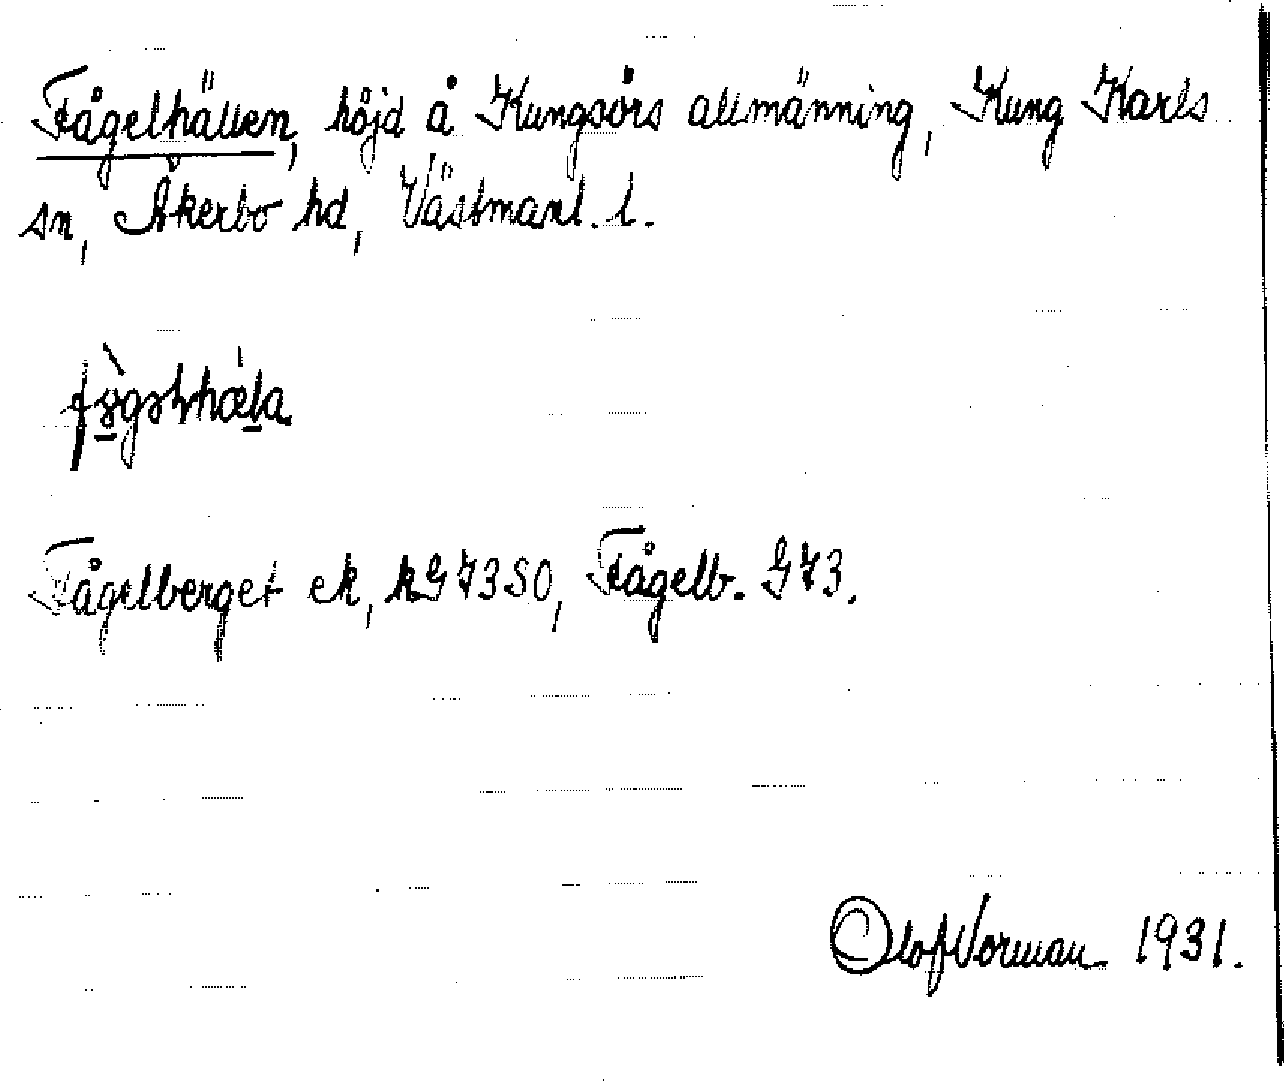 Fågelhällen, höjd å Kungsörs allmänning, Kung Karls
sn, Åkerbo hd, Västmanl. l.
Fågelberget ek, kG 73 SO, Fågelb. G 73.
Olof Norman 1931.